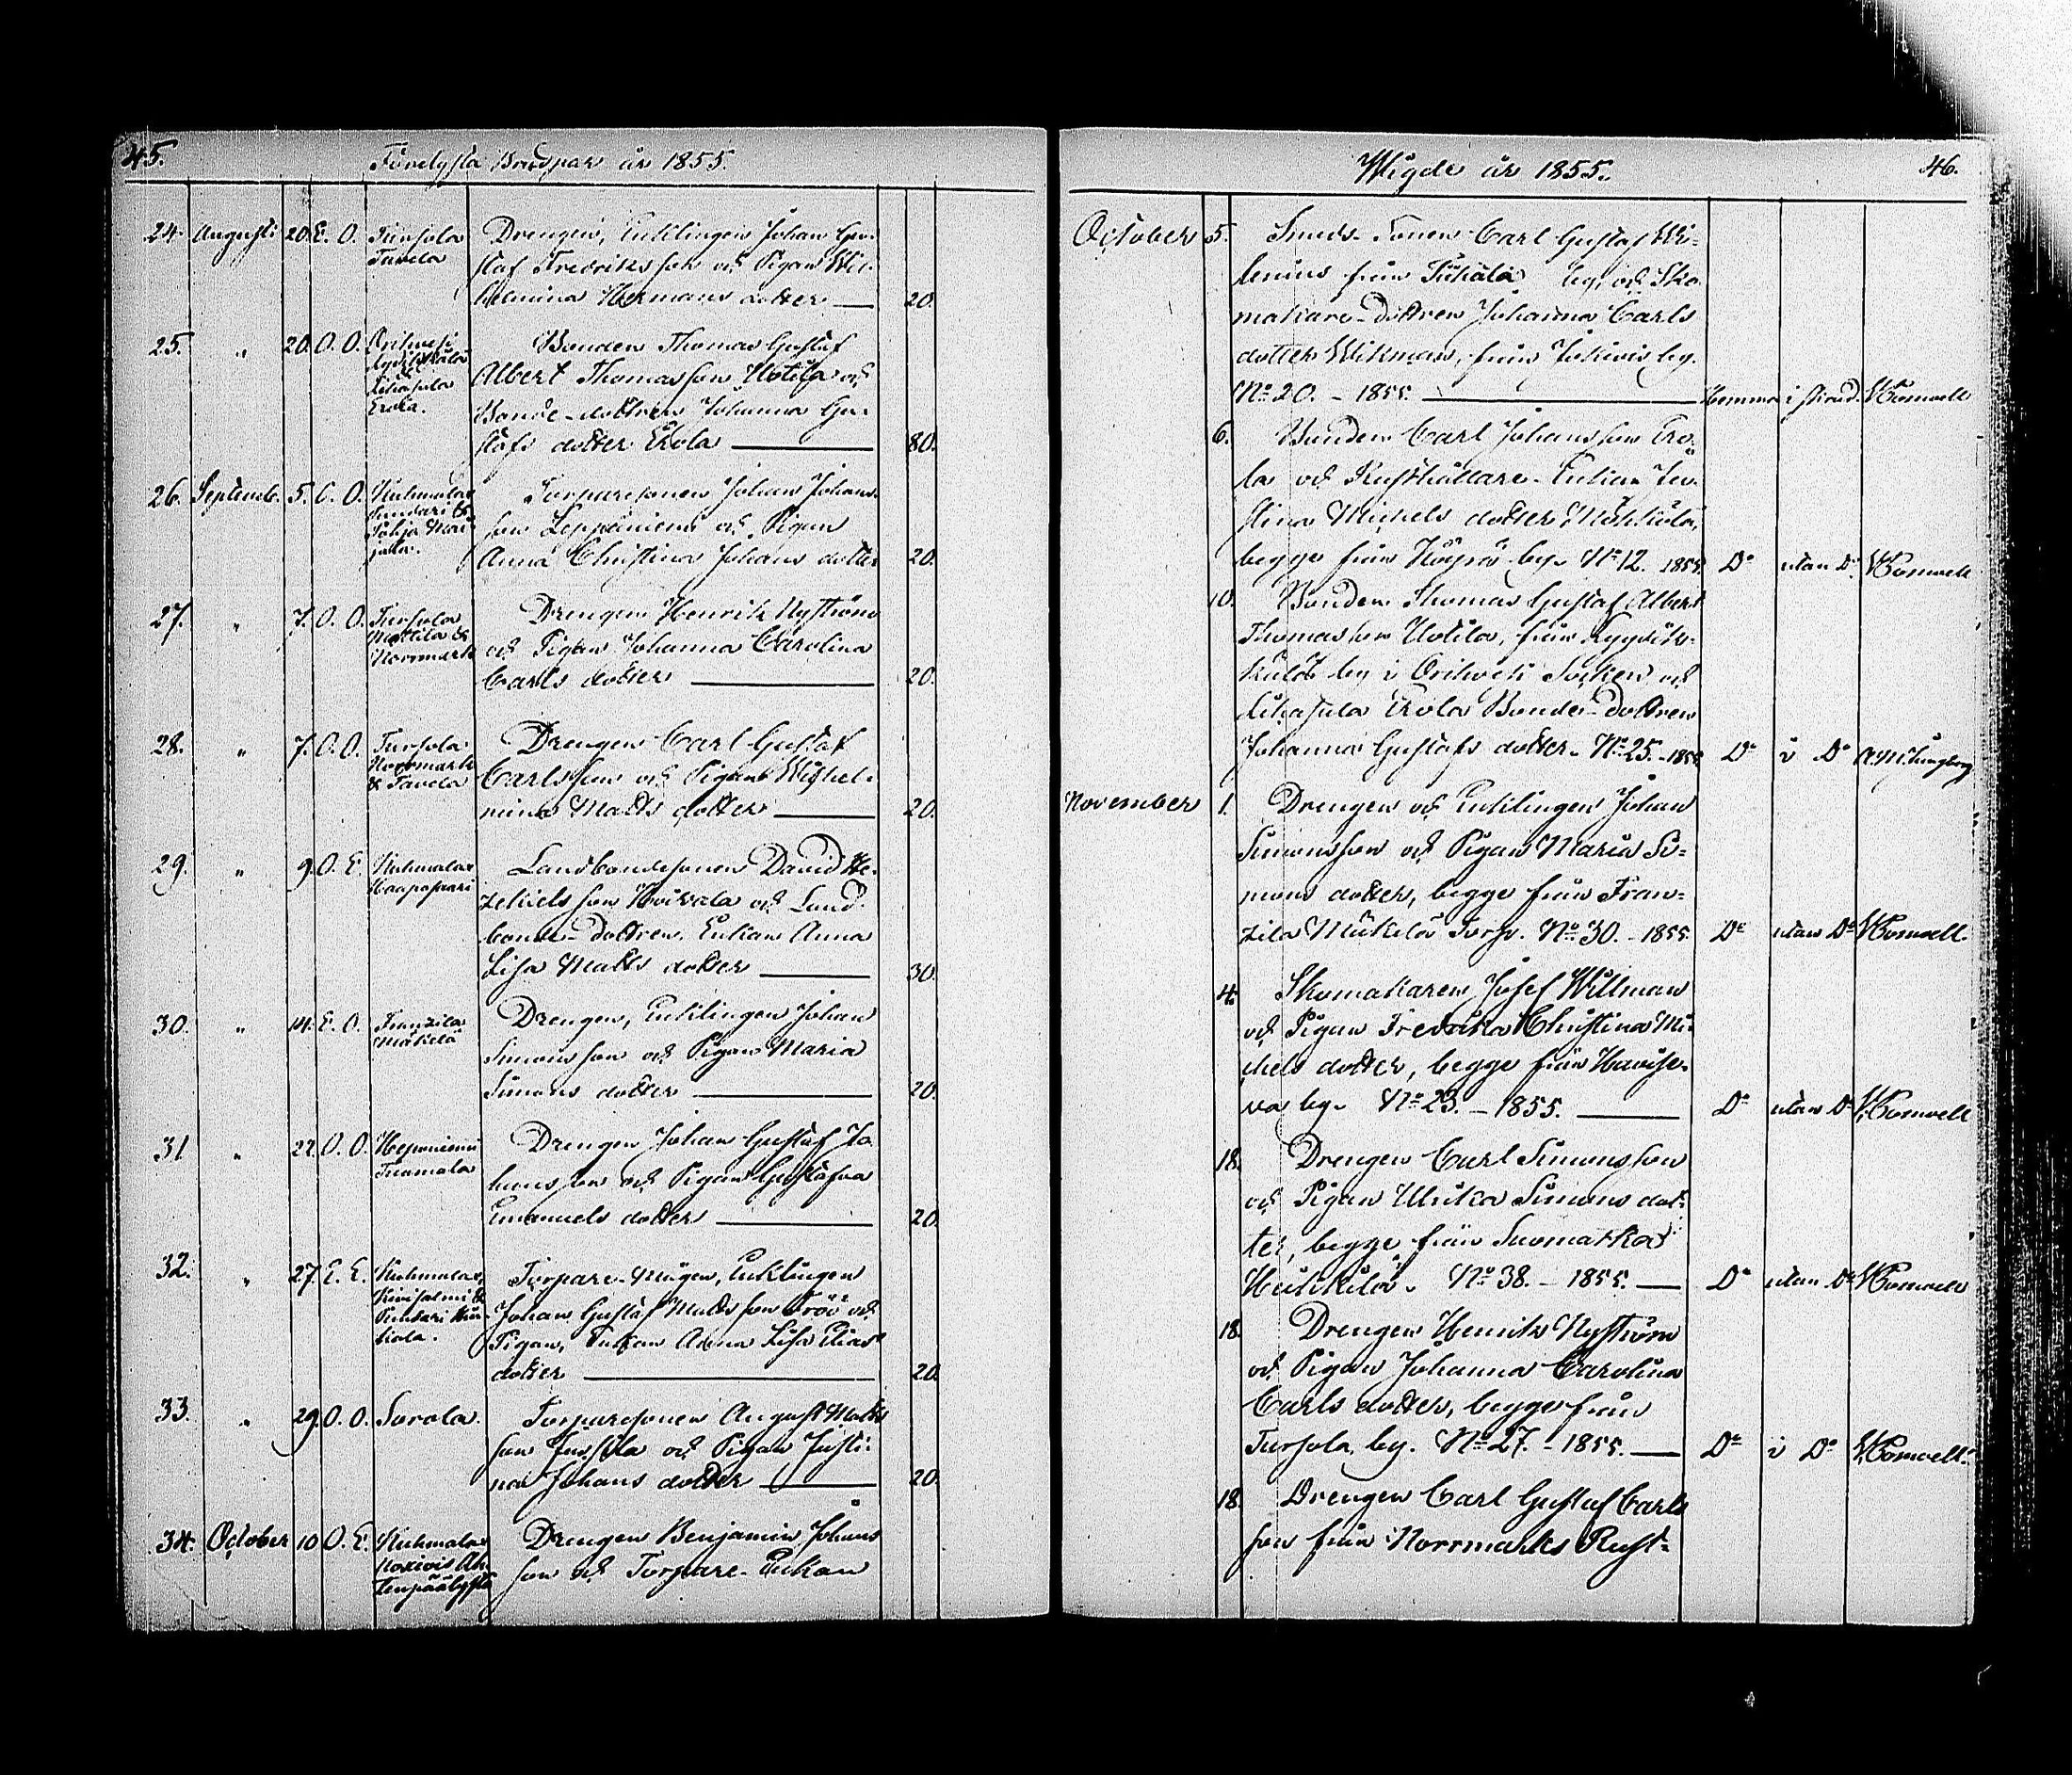 45.
Förelysta Brudpar år 1855.
24. Augusti 20. E. O. Tursola Tavela
Drengen, Enklingen Johan Gu-
staf Fredriksson och Pigan Wil-
helmina Hermans dotter — 20.
25. " 20. O. O. Orihvesi & Erola.
Bonden Thomas Gustaf
Albert Thomasson Uotila och
Bonde-dottren Johanna Gu-
stafs dotter Erola — 80.
26. Septemb. 5. O. O. Kuhmalax
Torparesonen Johan Johans-
son Leppäniemi och Pigan
Anna Christina Johans dotter 20.
27. " 7. O. O. Tursola Mattila & Norrmark
Drengen Henrik Nyström
och Pigan Johanna Carolina
Carls dotter — 20.
28. " 7. O. O. Tursola Norrmark & Tavela
Drengen Carl Gustaf
Carlsson och Pigan Wilhel-
mina Matts dotter — 20.
29. " 9. O. E. Kuhmalax Haapasaari
Landbondesonen David He-
zekielsson Koivala och Land-
bonde-dottren, Enkan Anna
Lisa Matts dotter — 30.
30. " 14. E. O. Franzila Mäkelä
Drengen, Enklingen Johan
Simonsson och Pigan Maria
Simons dotter — 20.
31 " 22. O. O. Heponiemi Tuomala
Drengen Johan Gustaf Jo-
hansson och Pigan Gustafva
Emanuels dotter — 20.
32. " 27. E. E. Kuhmalax,
Torpare-Mågen, Enklingen
Johan Gustaf Mattsson och
Pigan, Enkan Anna Lisa Elias
dotter — 20.
33. " 29. O. O. Sorola.
Torparesonen August Matts
son Jussila och Pigan Justi-
na Johans dotter — 20.
34. October 10 O. E. Kuhmalax
Drengen Benjamin Johans
son och Torpare-Enkan
Wigde år 1855.
46.
October 5. Smeds-Sonen Carl Gustaf Wi-
lenius från by, och Sko-
makare-dottren Johanna Carls
dotter Wikman, från by.
No 20. - 1855. — Hemma i brud.
6. Bonden Carl Johansson Ero-
la och Rusthållare-Enkan Ju-
stina Michels dotter
begge från by. No 12. 1855. Do utan Do
10. Bonden Thomas Gustaf Albert
Thomasson Uotila, från
by i Orihvesi Socken och
Erola Bonde-dottren
Johanna Gustafs dotter. No 25. - 1855 Do i Do
November 1. Drengen och Enklingen Johan
Simonsson och Pigan Maria Si-
mons dotter, begge från Fran-
zila Mäkelä Torp. No 30. - 1855. Do utan Do
4. Skomakaren Josef Willman
och Pigan Fredrika Christina Mi-
chels dotter, begge från
by. No 23. - 1855. — Do utan Do
18. Drengen Carl Simonsson
och Pigan Ulrika Simons dot-
ter, begge från
No 38. - 1855. — Do utan Do
18. Drengen Henrik Nyström
och Pigan Johanna Carolina
Carls dotter, begge från
Tursola by. No 27. - 1855. — Do i Do
18. Drengen Carl Gustaf Carls
son från Norrmarks Rust-